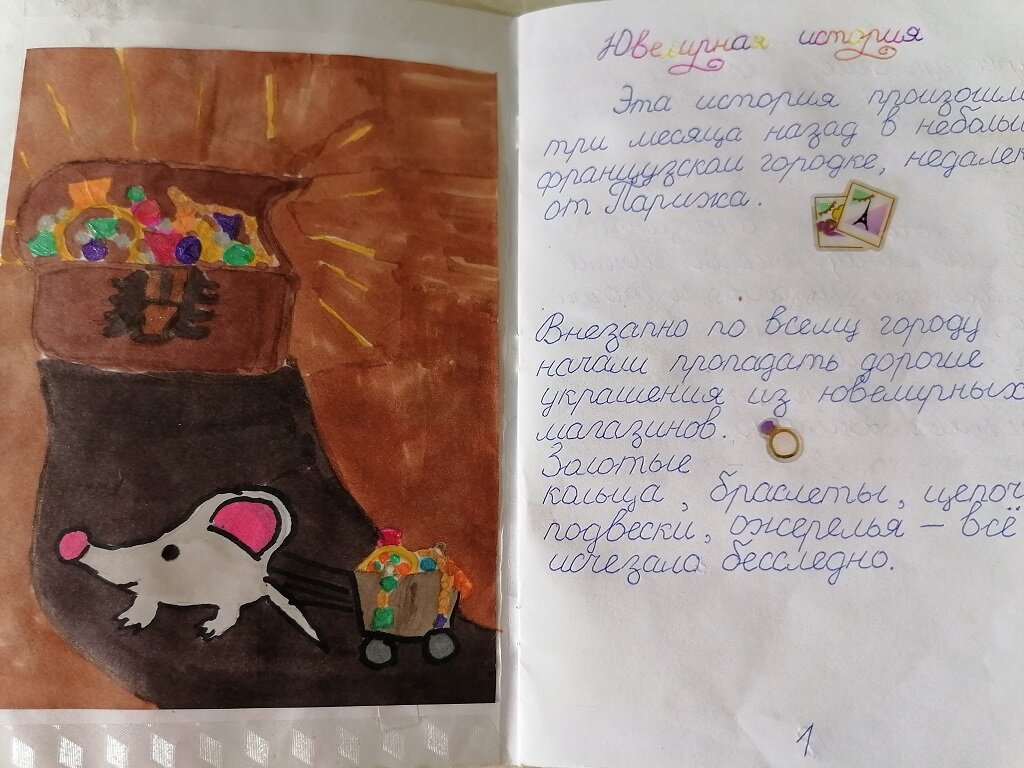 Ювелирная история
Эта история произошл
три месяца назад в неболь
французском городке, недалек
от Парижа.
Внезапно по всему городу
начали пропадать дорогие
украшения из ювелирных
магазинов.
Золотые
кольца, браслеты, цепоч
подвески, ожерелья – всё
исчезало бесследно.
1